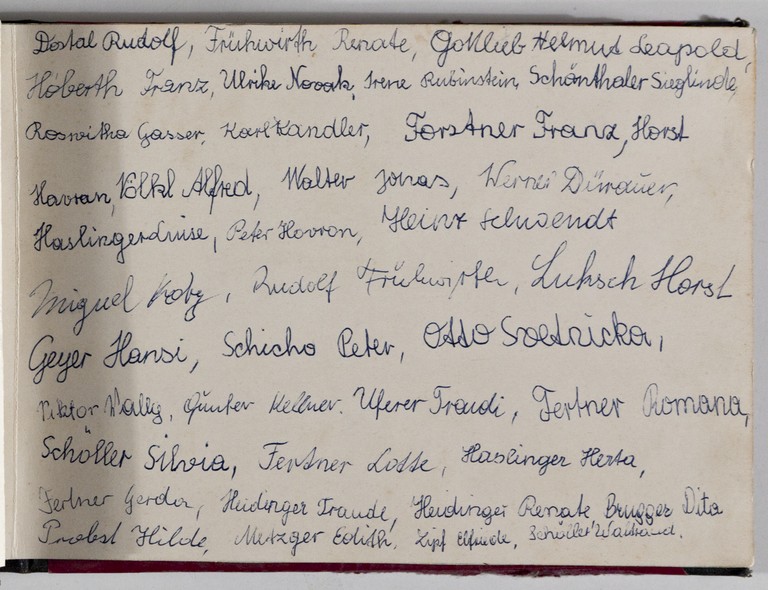 Dostal Rudolf, Frühwirth Renate, Gottlieb Helmut Leopold,
Höberth Franz, Ulrike Novak, Irene Rubinstein, Schönthaler Sieglinde,
Roswitha Gasser, Karl Kandler, Forstner Franz, Horst
Havran, Völkl Alfred, Walter Jonas, Werner Dürauer,
Haslinger Peter Havran, Heinz Schwendt
Miguel Rudolf Frühwirth, Luksch Horst
Geyer Hansi, Schicho Peter, Otto
Viktor Wally, Günter Kellner. Uferer Traudi, Fertner Romana,
Schöller Silvia, Fertner Lotte, Haslinger Herta,
Fertner Gerda, Heidinger Traude, Heidinger Renate Brugger Dita
Probst Hilde, Metzger Edith, Zipf Elfriede, Schöller Waltraud.